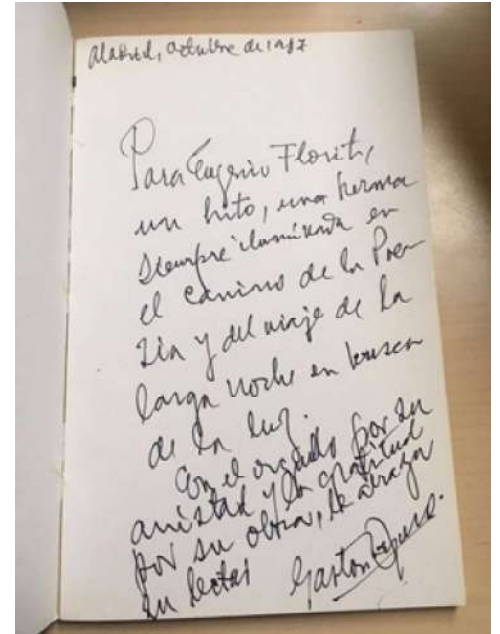 Madrid, octubre de 1987
Para Eugenio Florit,
un hito, una herma
siempre iluminada en
el camino de la Poe-
sía y del viaje de la
larga noche en busca
de la luz.
Con el orgullo por su
amistad y la gratitud
por su obra, le abraza
su lector Gaston Baquero.